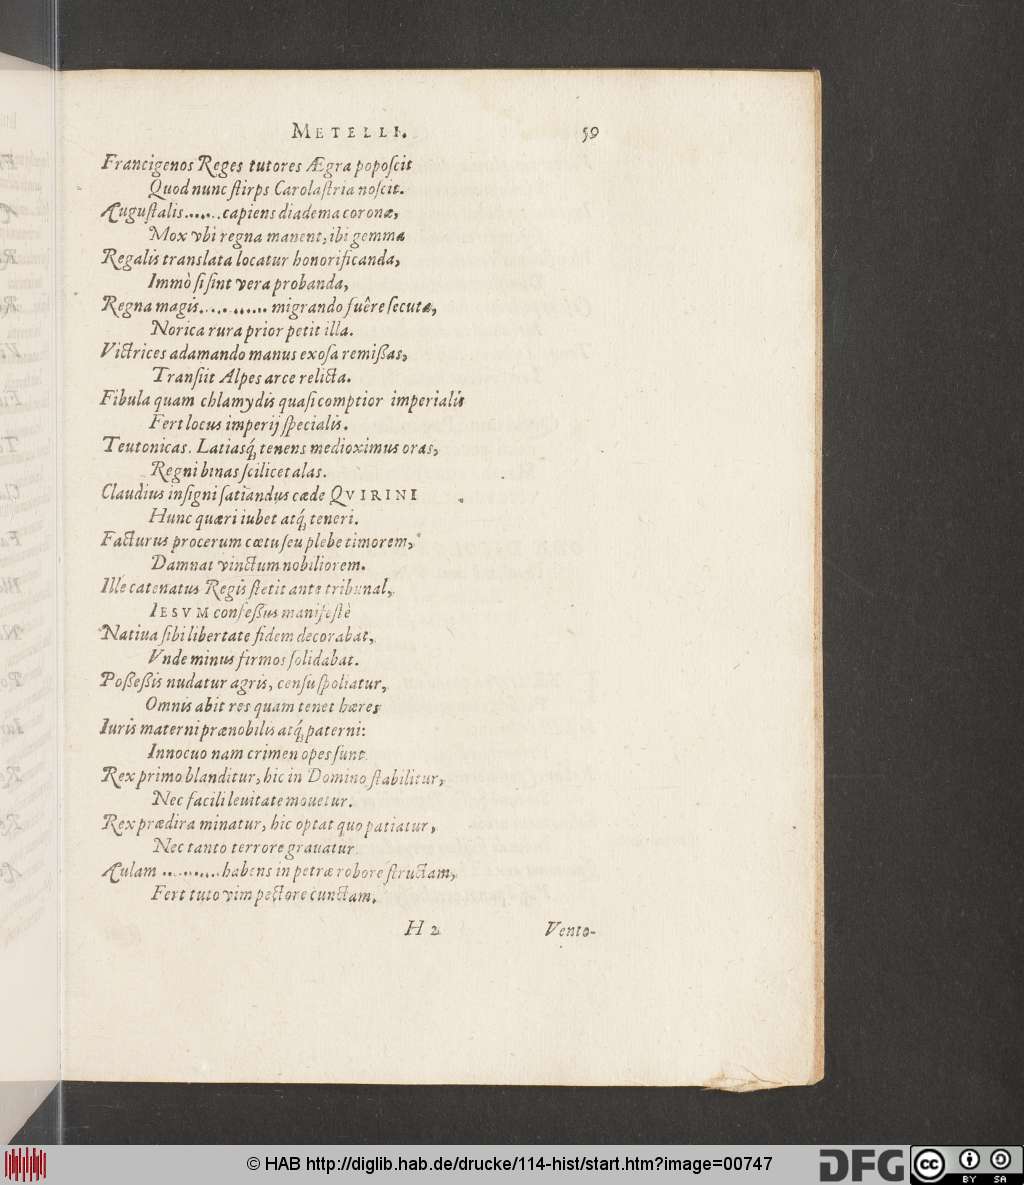 METELLI. 59
Francigenos Reges tutores Ægra poposcit
Quod nunc stirps Carolastria noscit.
Augustalis....... capiens diadema coronæ,
Mox vbi regna manent, ibi gemma
Regalis translata locatur honorificanda,
Immò si sint vera probanda,
Regna magis............ migrando fuêre secutæ,
Norica rura prior petit illa.
Victrices adamando manus exosa remißas,
Transiit Alpes arce relicta.
Fibula quam chlamydis quasi comptior imperialis
Fert locus imperij specialis.
Teutonicas. Latiasq́; tenens medioximus oras,
Regni binas scilicet alas.
Claudius insigni satiandus cæde QVIRINI
Hunc quæri iubet atq́; teneri.
Facturus procerum cœtu seu plebe timorem,
Damnat vinctum nobiliorem.
Ille catenatus Regis stetit ante tribunal,
IESVM confeßus manifestè
Natiua sibi libertate fidem decorabat,
Vnde minus firmos solidabat.
Poßeßis nudatur agris, censu spoliatur,
Omnis abit res quam tenet hæres
Iuris materni prænobilis atq́; paterni:
Innocuo nam crimen opes sunt
Rex primo blanditur, hic in Domino stabilitur,
Nec facili leuitate mouetur.
Rex prædira minatur, hic optat quo patiatur,
Nec tanto terrore grauatur
Aulam .......... habens in petræ robore structam,
Fert tuto vim pectore cunctam.
H 2 Vento-
© HAB http://diglib.hab.de/drucke/114-hist/start.htm?image=00747
DFG
cc
BY SA